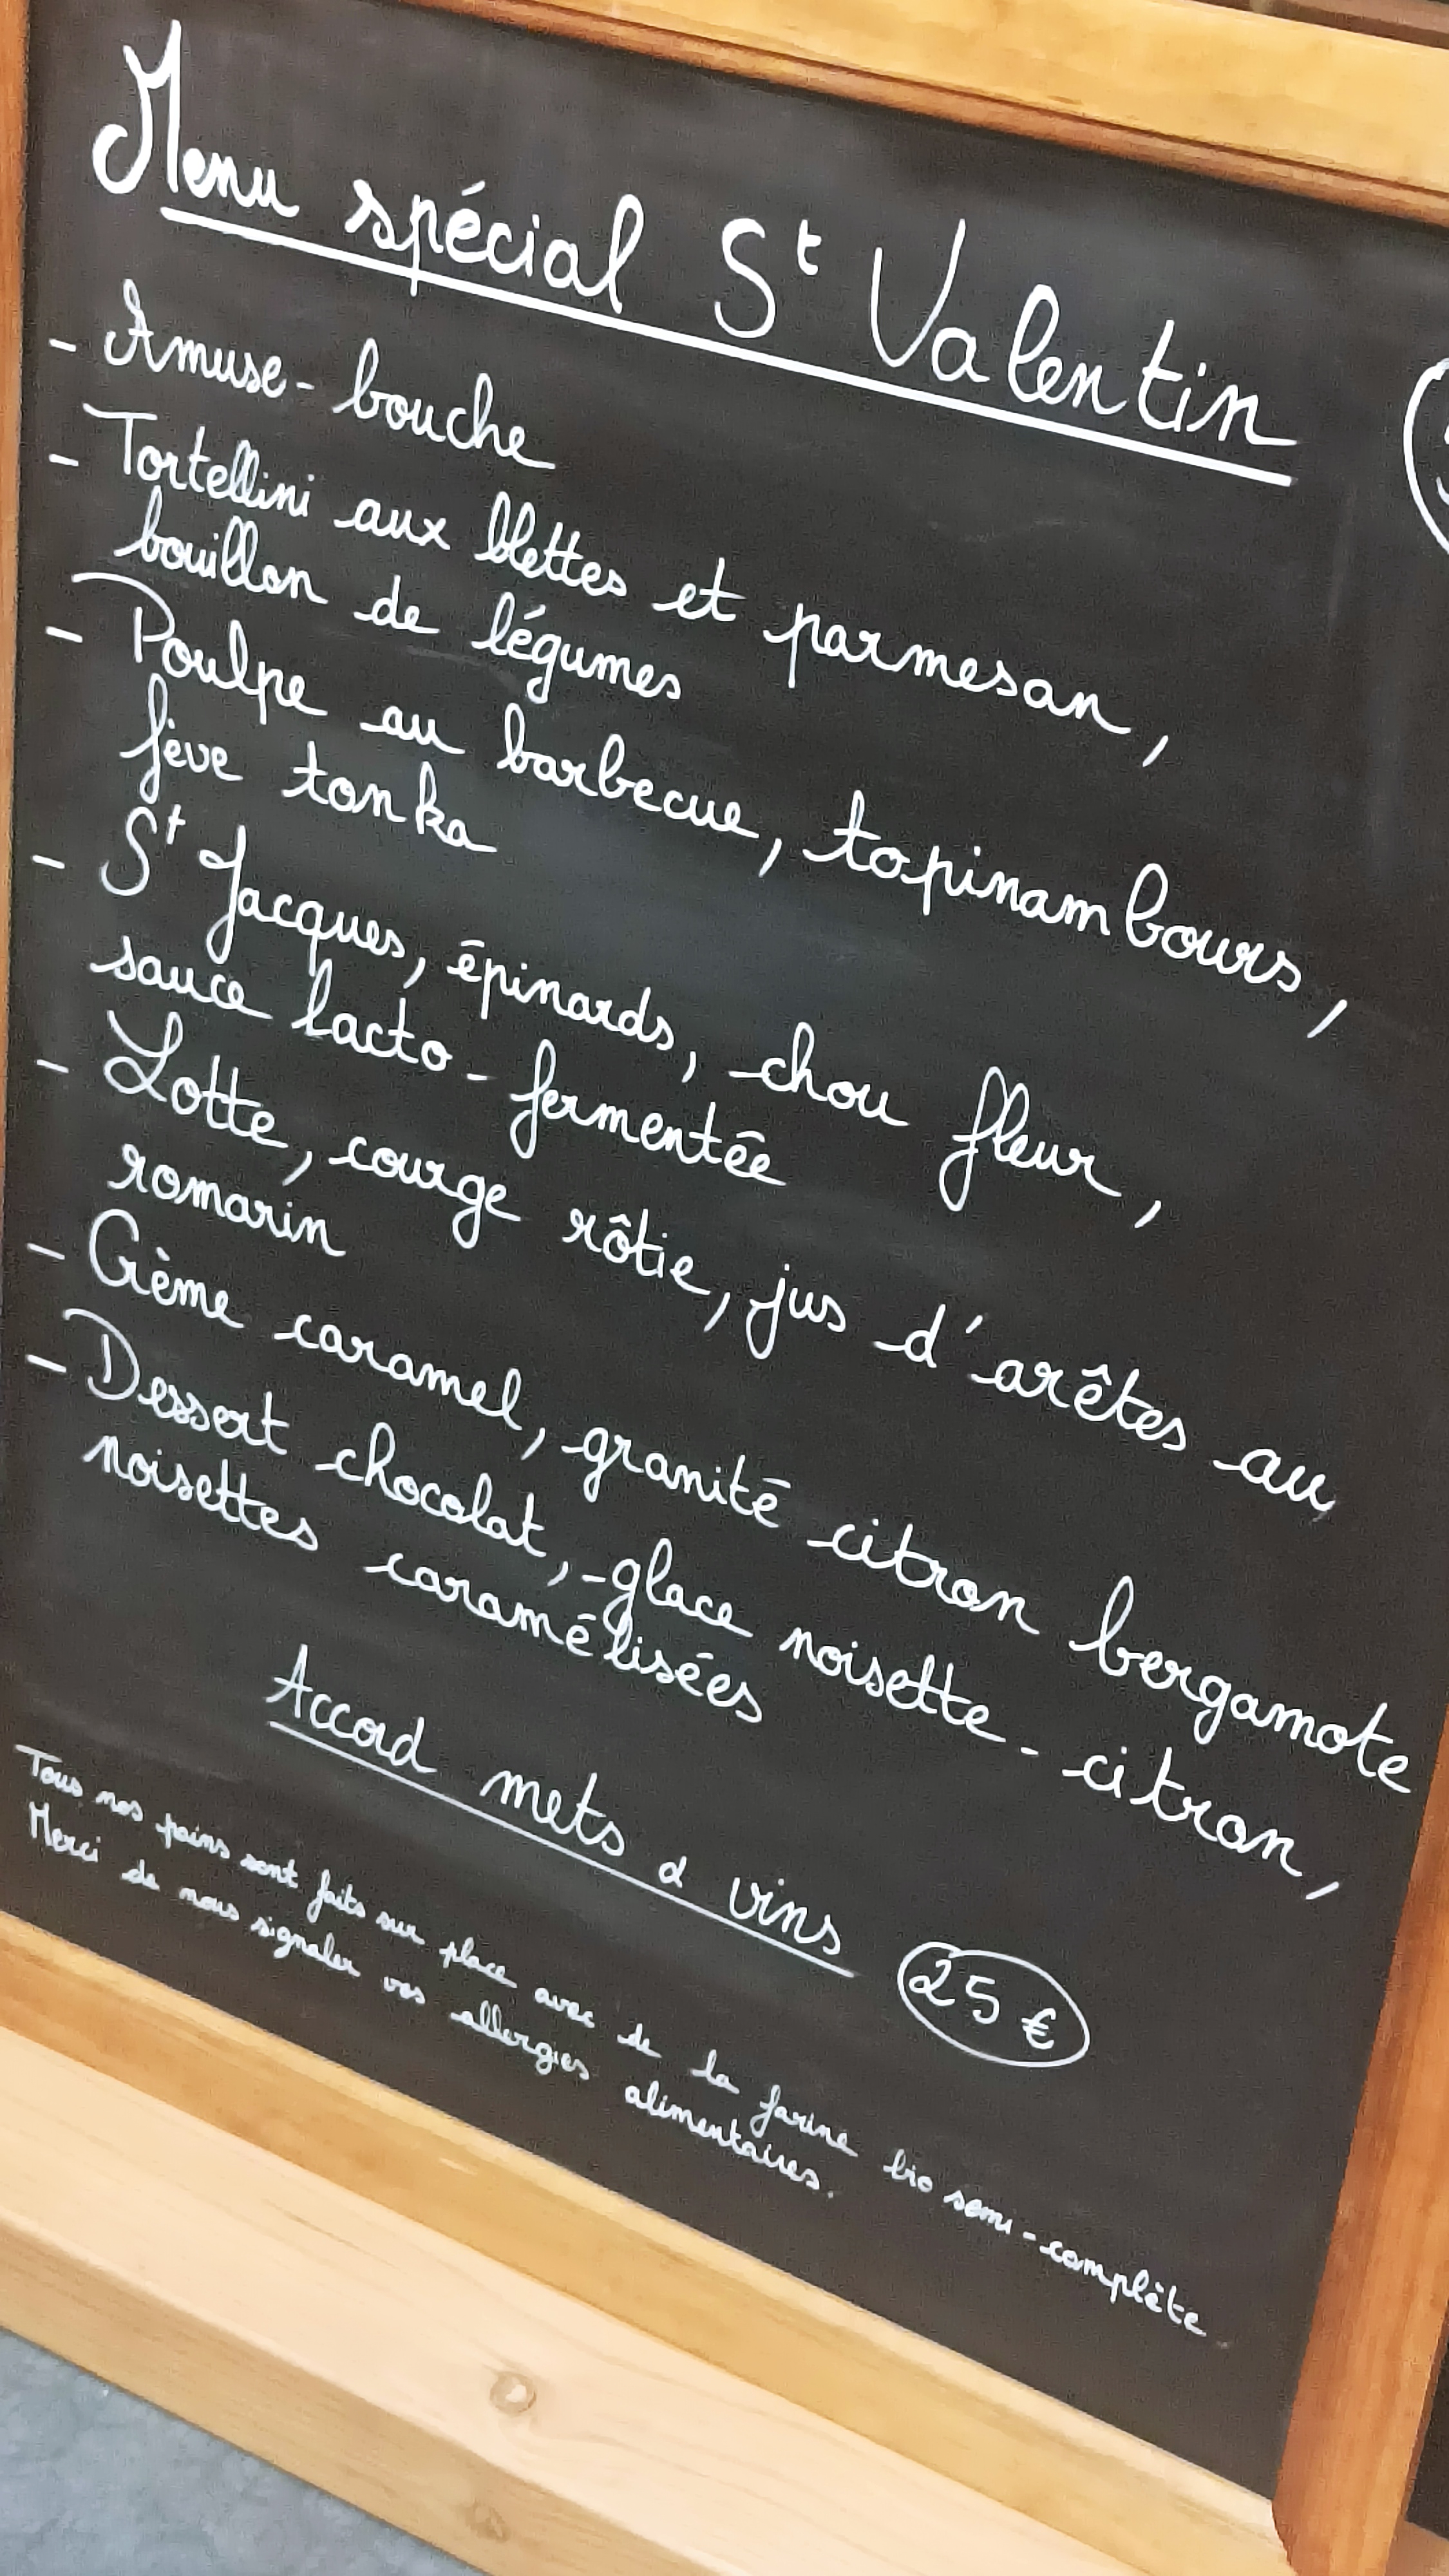 Menu spécial St Valentin
- Amuse-bouche
- Tortellini aux blettes et parmesan,
bouillon de légumes
- Poulpe au barbecue, topinambours,
fève tonka
- St Jacques, épinards, chou fleur,
sauce lacto-fermentée
- Lotte, courge rôtie, jus d'arêtes au
romarin
- Crème caramel, granité citron bergamote
- Dessert chocolat, glace noisette-citron,
noisettes caramélisées
Accord mets & vins 25 €
Tous nos pains sont faits sur place avec de la farine bio semi-complète
Merci de nous signaler vos allergies alimentaires.